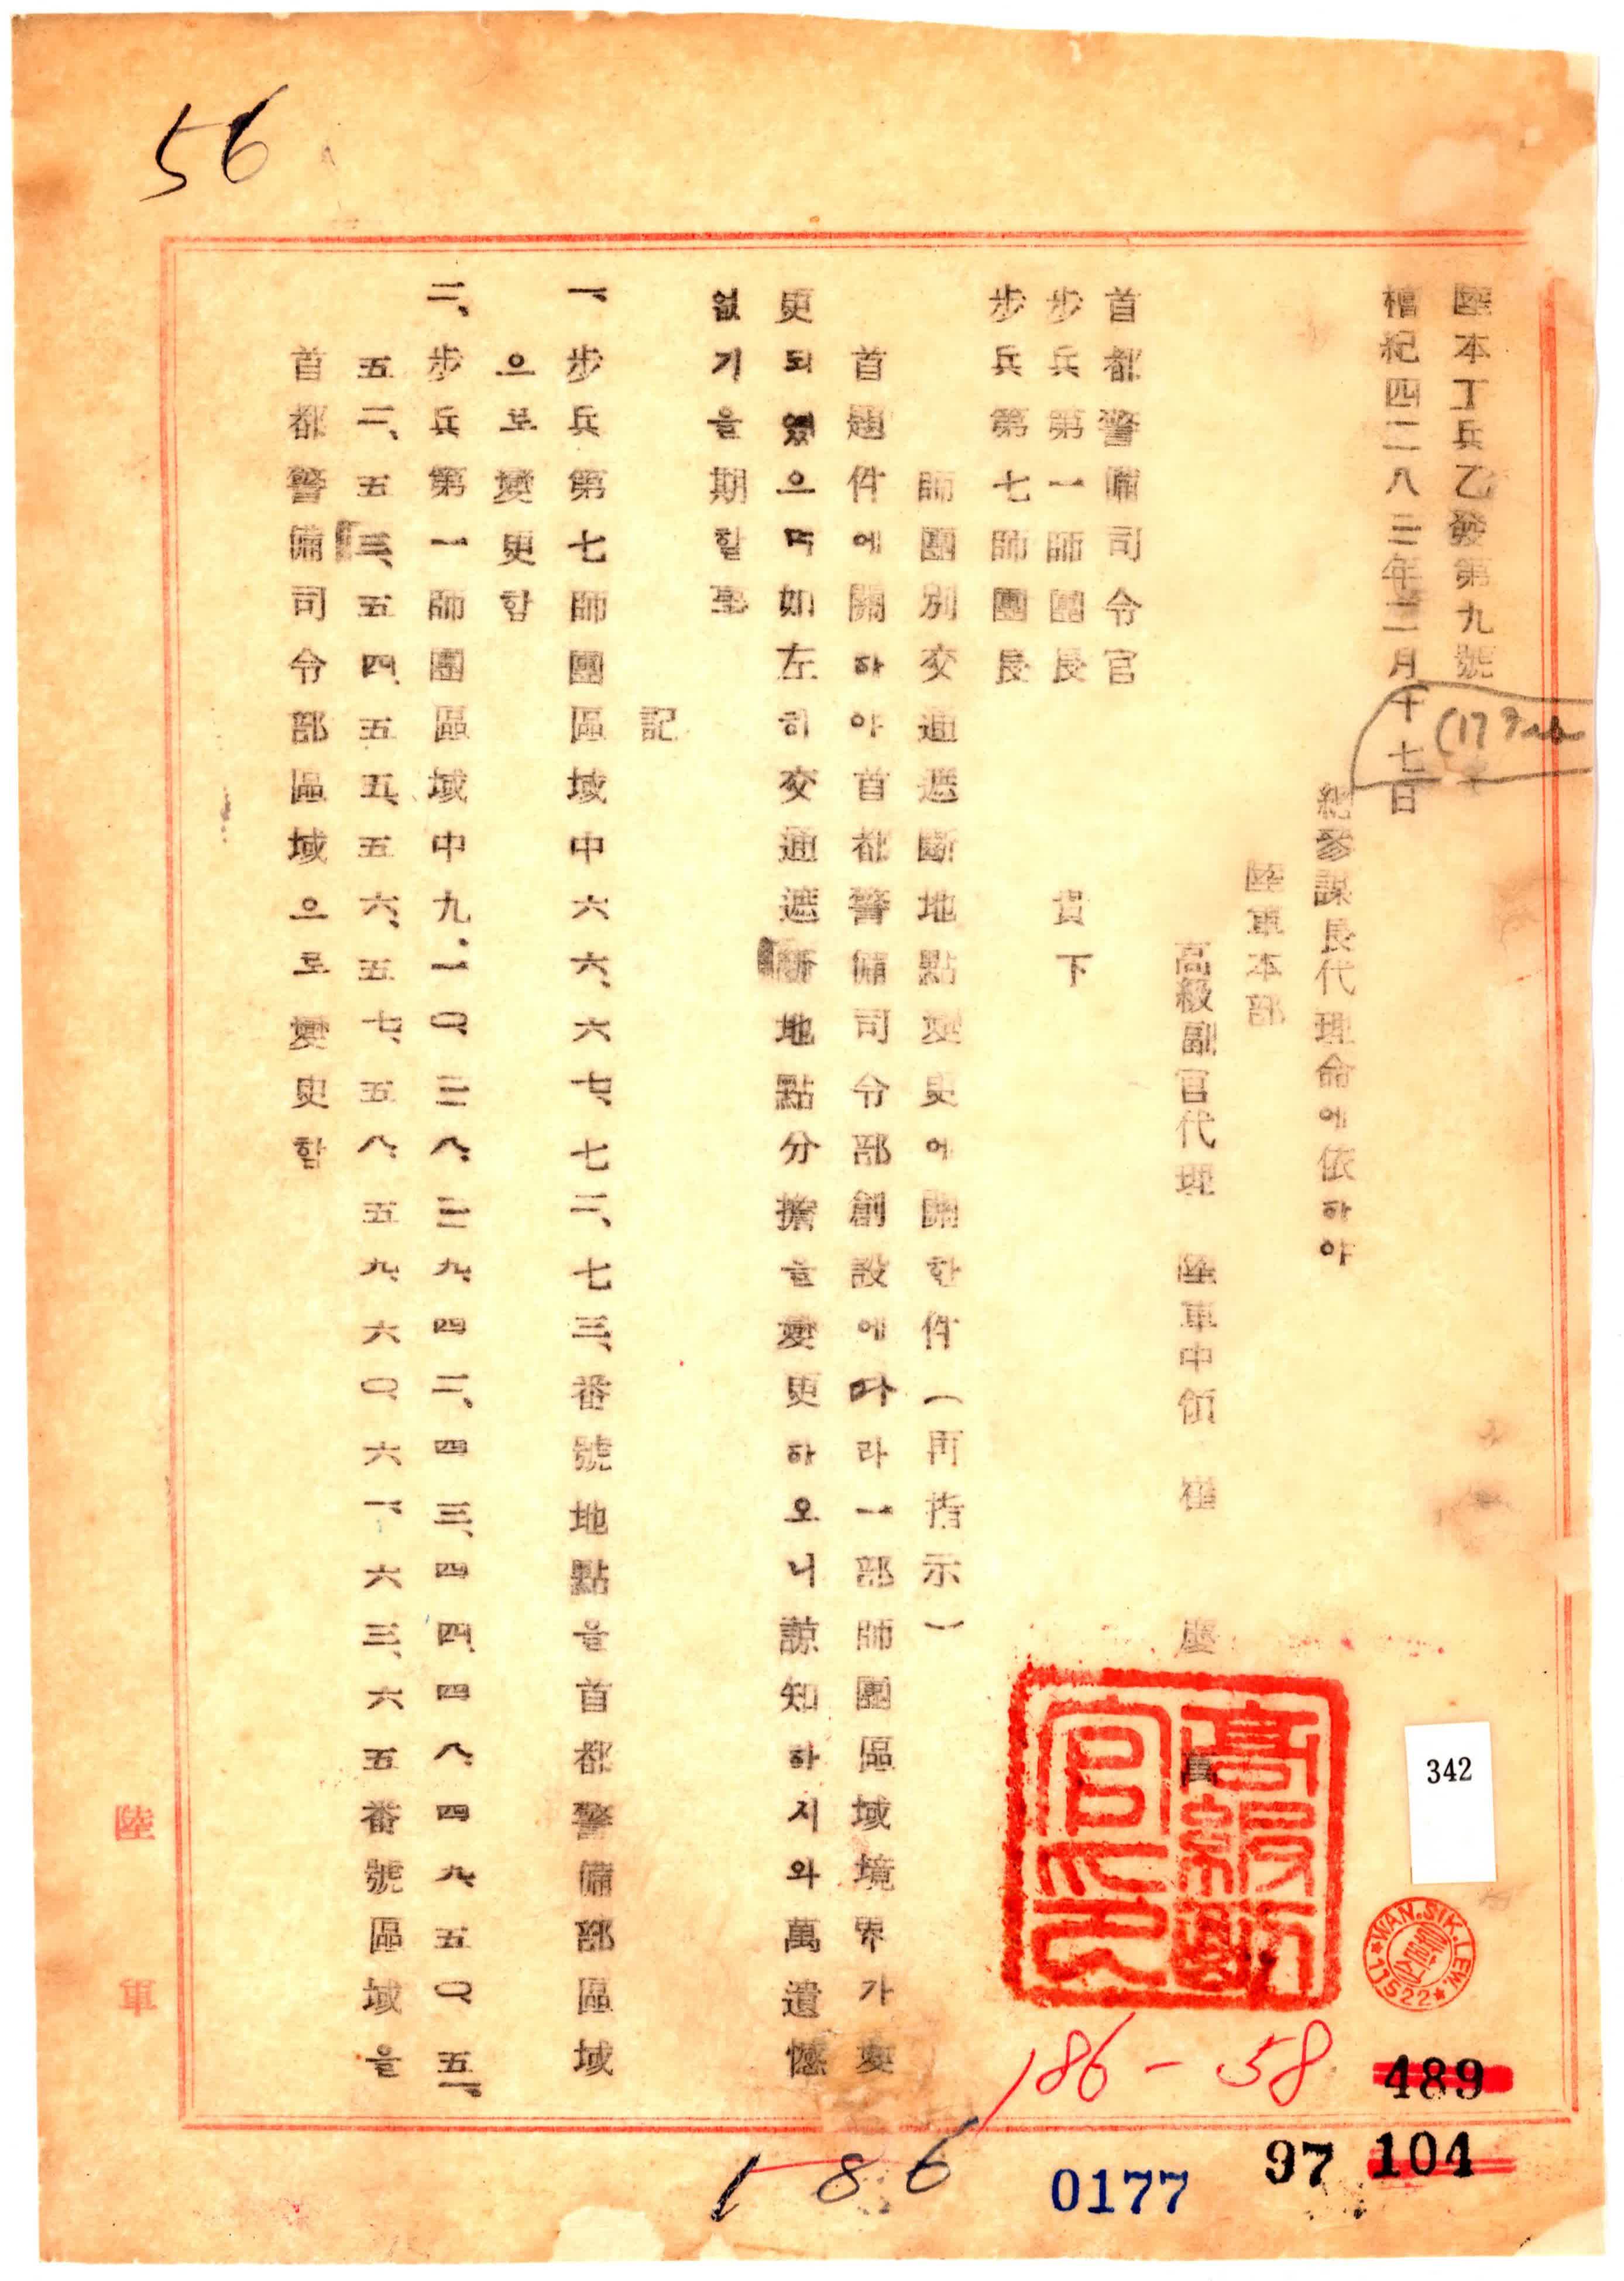 56
陸本工兵乙發第九號
檀紀四二八三年二月十七日
(17 Feb
總參謀長代理命에依하야
陸軍本部
高級副官代理 陸軍中領 崔 慶 萬
高級副官之印
首都警備司令官
步兵第一師團長
步兵第七師團長
貴下
師團別交通遮斷地點變更에關한件(再指示)
首題件에關하야首都警備司令部創設에따라一部師團區域境界가變
更되였으며如左히交通遮斷地點分擔을變更하오니諒知하시와萬遺憾
없기을期할것
記
一、步兵第七師團區域中六六、六七、七二、七三、番號地點을首都警備部區域
으로變更함
二、步兵第一師團區域中九、一〇、三八、三九、四二、四三、四四、四八、四九、五〇、五一、
五二、五三、五四、五五、五六、五七、五八、五九、六〇、六一、六三、六五番號區域을
首都警備司令部區域으로變更함
陸軍
342
WAN.SIK.LEW.
11522
186-58
489
104
97
0177
186